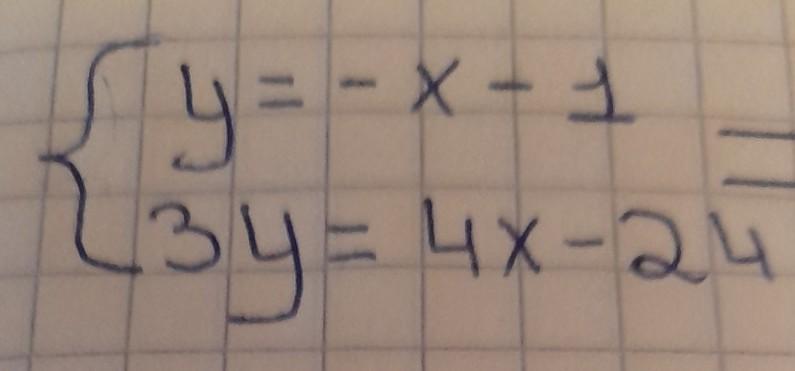 y = - x - 1
3y = 4x - 24 =